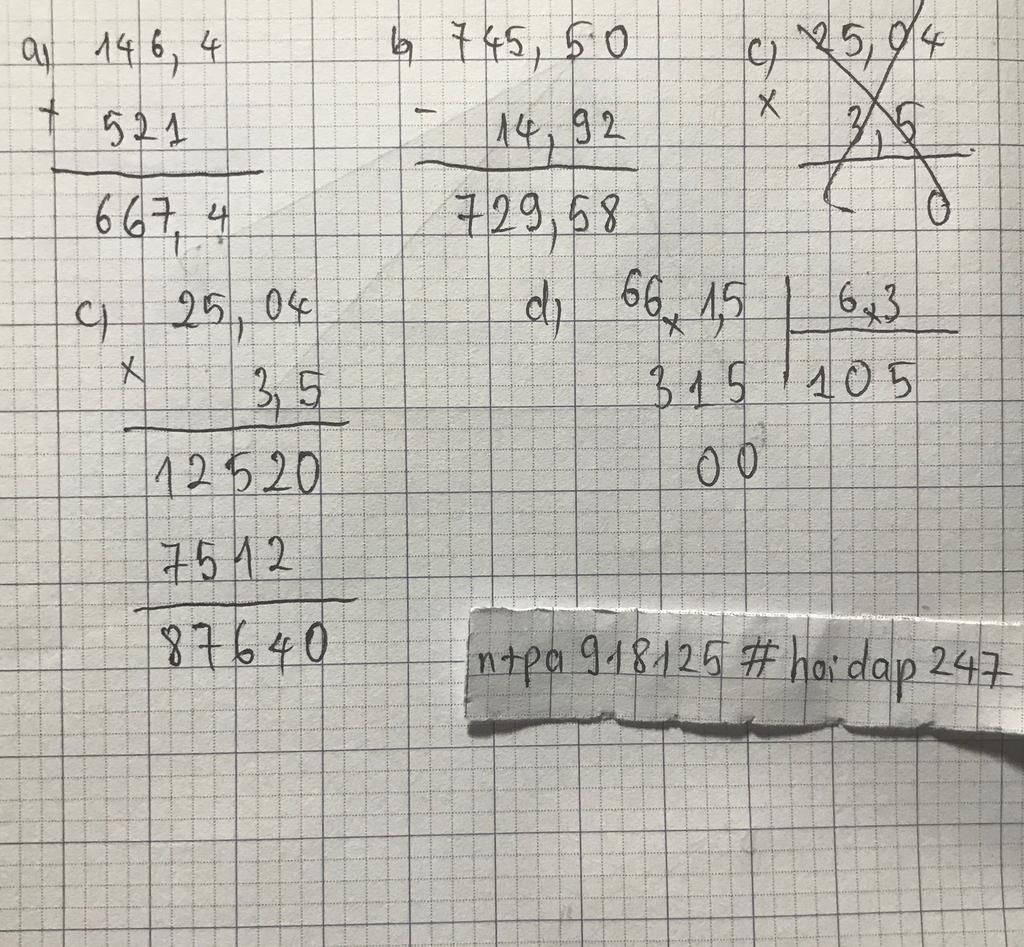 a) 146,4
+ 521
667,4
b) 745,50
- 14,92
729,58
c) 25,04
x 3,5
0
c) 25,04
x 3,5
12520
7512
87640
d) 66x1,5 | 6x3
315 | 105
00
ntpa 918125 # hoidap 247